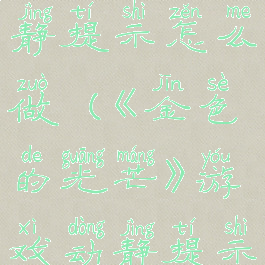 jìng tí shì zěn me
静媞示怎么
zuò jīn sè
做（《金色
de guāng máng yóu
的光芒》游
xì dòng jìng tí shì
戏动静媞示